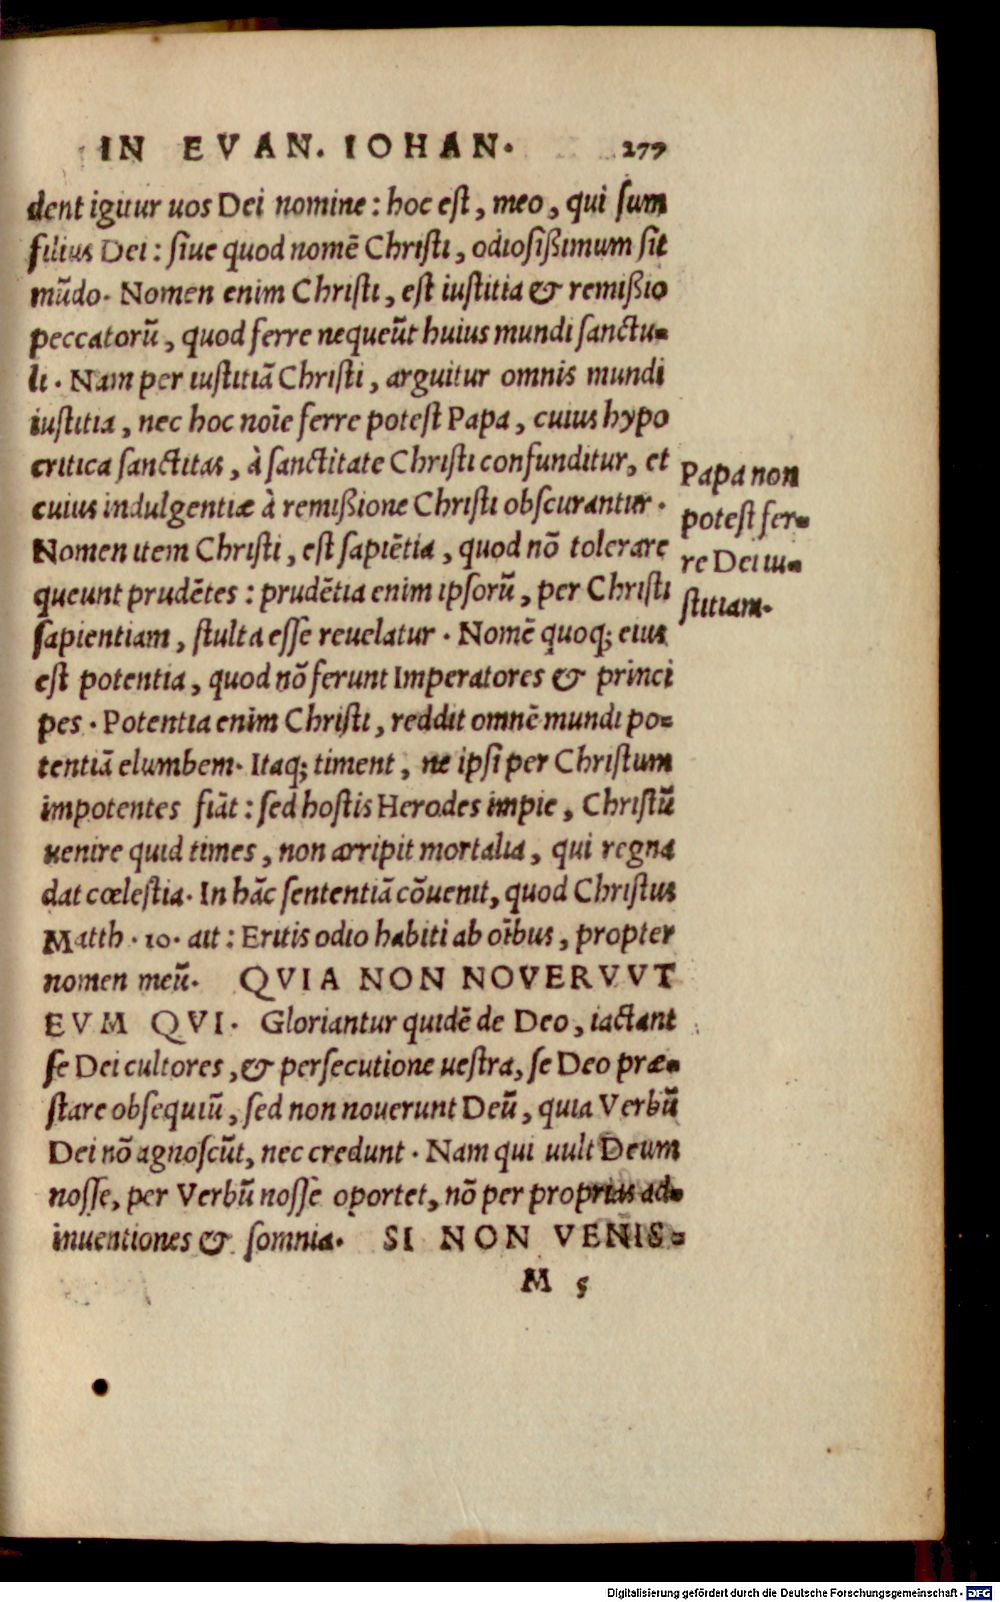 IN EVAN. IOHAN. 277
dent igitur uos Dei nomine: hoc est, meo, qui sum
filius Dei: siue quod nomē Christi, odiosißimum sit
mūdo. Nomen enim Christi, est iustitia & remißio
peccatorū, quod ferre nequeūt huius mundi sanctu-
li. Nam per iustitiā Christi, arguitur omnis mundi
iustitia, nec hoc noīe ferre potest Papa, cuius hypo
critica sanctitas, à sanctitate Christi confunditur, et
cuius indulgentiæ à remißione Christi obscurantur.
Nomen item Christi, est sapiētia, quod nō tolerare
queunt prudētes: prudētia enim ipsorū, per Christi
sapientiam, stulta esse reuelatur. Nomē quoq; eius
est potentia, quod nō ferunt Imperatores & princi
pes. Potentia enim Christi, reddit omnē mundi po-
tentiā elumbem. Itaq; timent, ne ipsi per Christum
impotentes fiāt: sed hostis Herodes impie, Christū
uenire quid times, non arripit mortalia, qui regna
dat cœlestia. In hāc sententiā cōuenit, quod Christus
Matth. 10. ait: Eritis odio habiti ab oībus, propter
nomen meū. QVIA NON NOVERVVT
EVM QVI. Gloriantur quidē de Deo, iactant
se Dei cultores, & persecutione uestra, se Deo præ-
stare obsequiū, sed non nouerunt Deū, quia Verbū
Dei nō agnoscūt, nec credunt. Nam qui uult Deum
nosse, per Verbū nosse oportet, nō per proprias ad-
inuentiones & somnia. SI NON VENIS-
M 5
Papa non
potest fer-
re Dei iu-
stitiam.
Digitalisierung gefördert durch die Deutsche Forschungsgemeinschaft - DFG